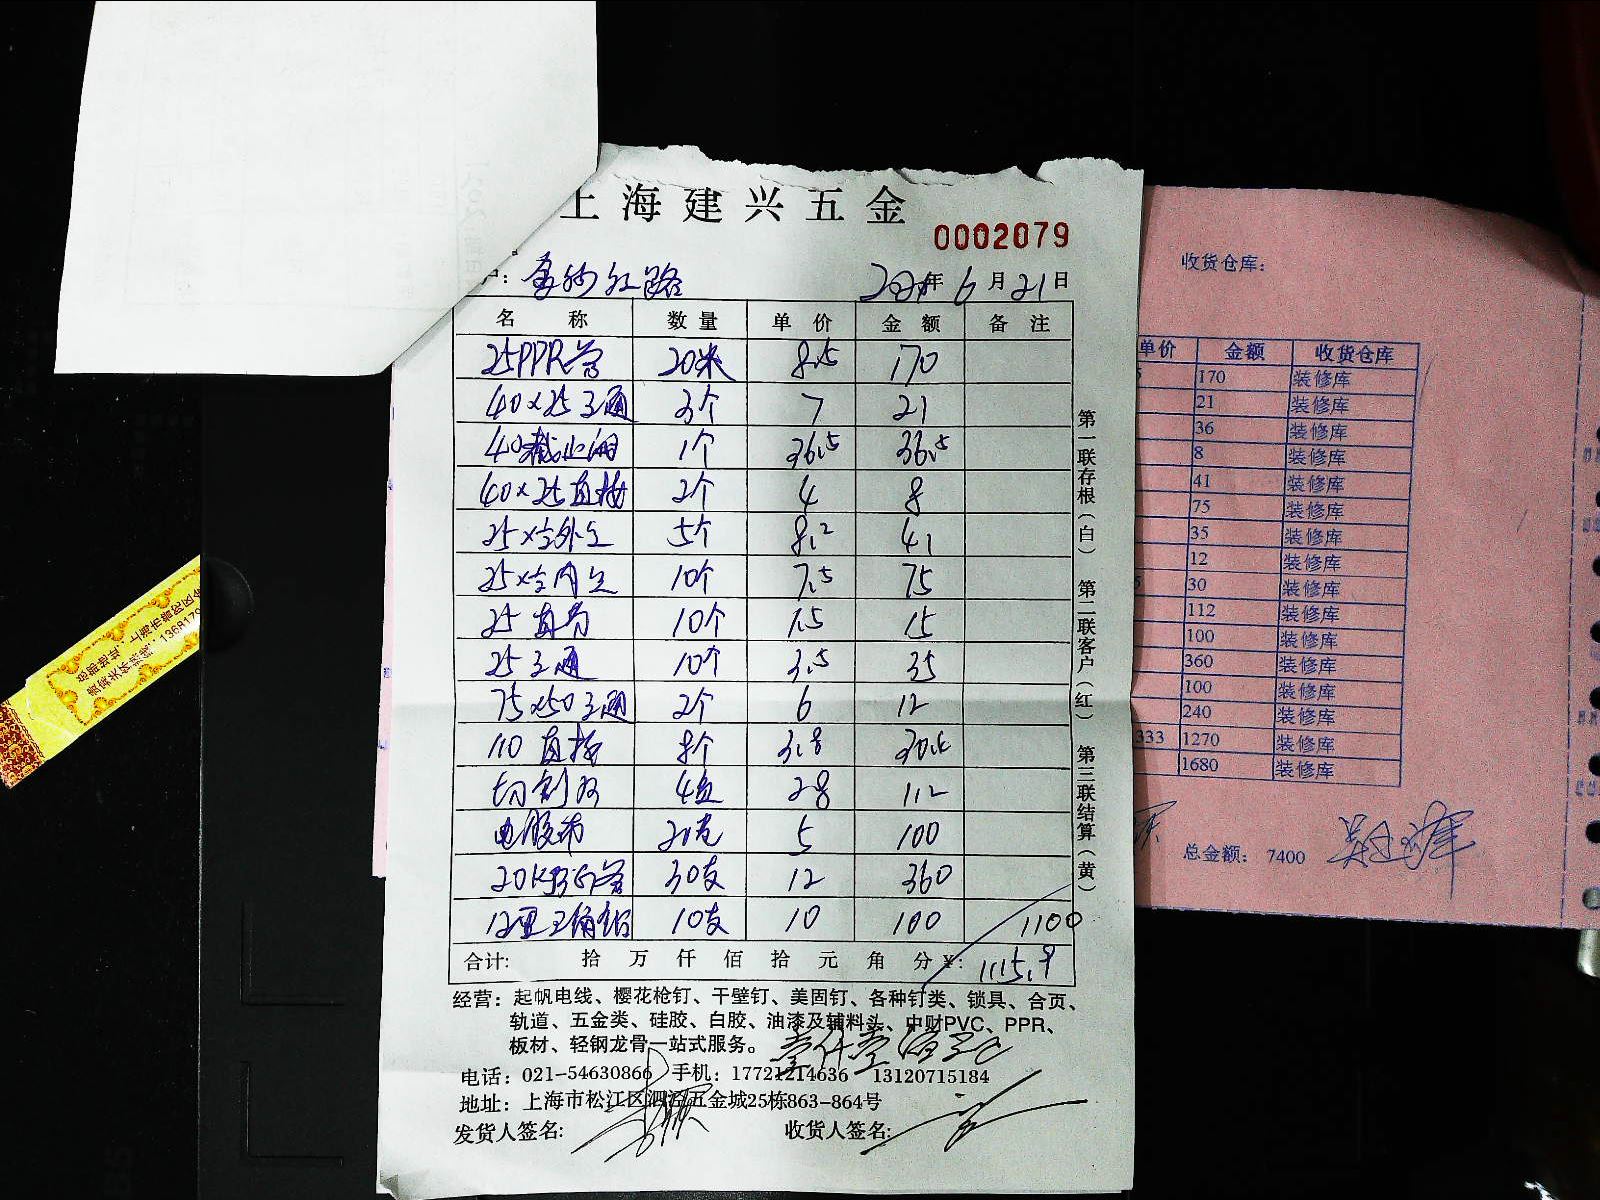 上海建兴五金
0002079
户:
年 6月21日
名 称 数量 单价 金额 备注
25PPR管 20米 8.5 170
40×25三通 3个 7 21
40截止阀 1个 36.5 36.5
40×25直接 2个 4 8
25× 外 5个 8.2 41
25× 内 10个 7.5 75
25 直 10个 1.5 15
25三通 10个 3.5 35
75×50三通 2个 6 12
110 直接 8个 3.8 30.4
切割 4 28 112
电胶布 20 5 100
20KBG管 30支 12 360
12 三角铝 10支 10 100 1100
合计: 拾 万 仟 佰 拾 元 角 分 ¥: 1115.9
经营:起帆电线、樱花枪钉、干壁钉、美固钉、各种钉类、锁具、合页、
轨道、五金类、硅胶、白胶、油漆及辅料头、中财PVC、PPR、
板材、轻钢龙骨一站式服务。
电话:021-54630866 手机:17721214636 13120715184
地址:上海市松江区泗泾五金城25栋863-864号
发货人签名: 收货人签名:
第一联存根(白) 第二联客户(红) 第三联结算(黄)
收货仓库:
单价 金额 收货仓库
5 170 装修库
21 装修库
36 装修库
8 装修库
41 装修库
75 装修库
35 装修库
12 装修库
5 30 装修库
112 装修库
100 装修库
360 装修库
100 装修库
240 装修库
333 1270 装修库
1680 装修库
总金额: 7400